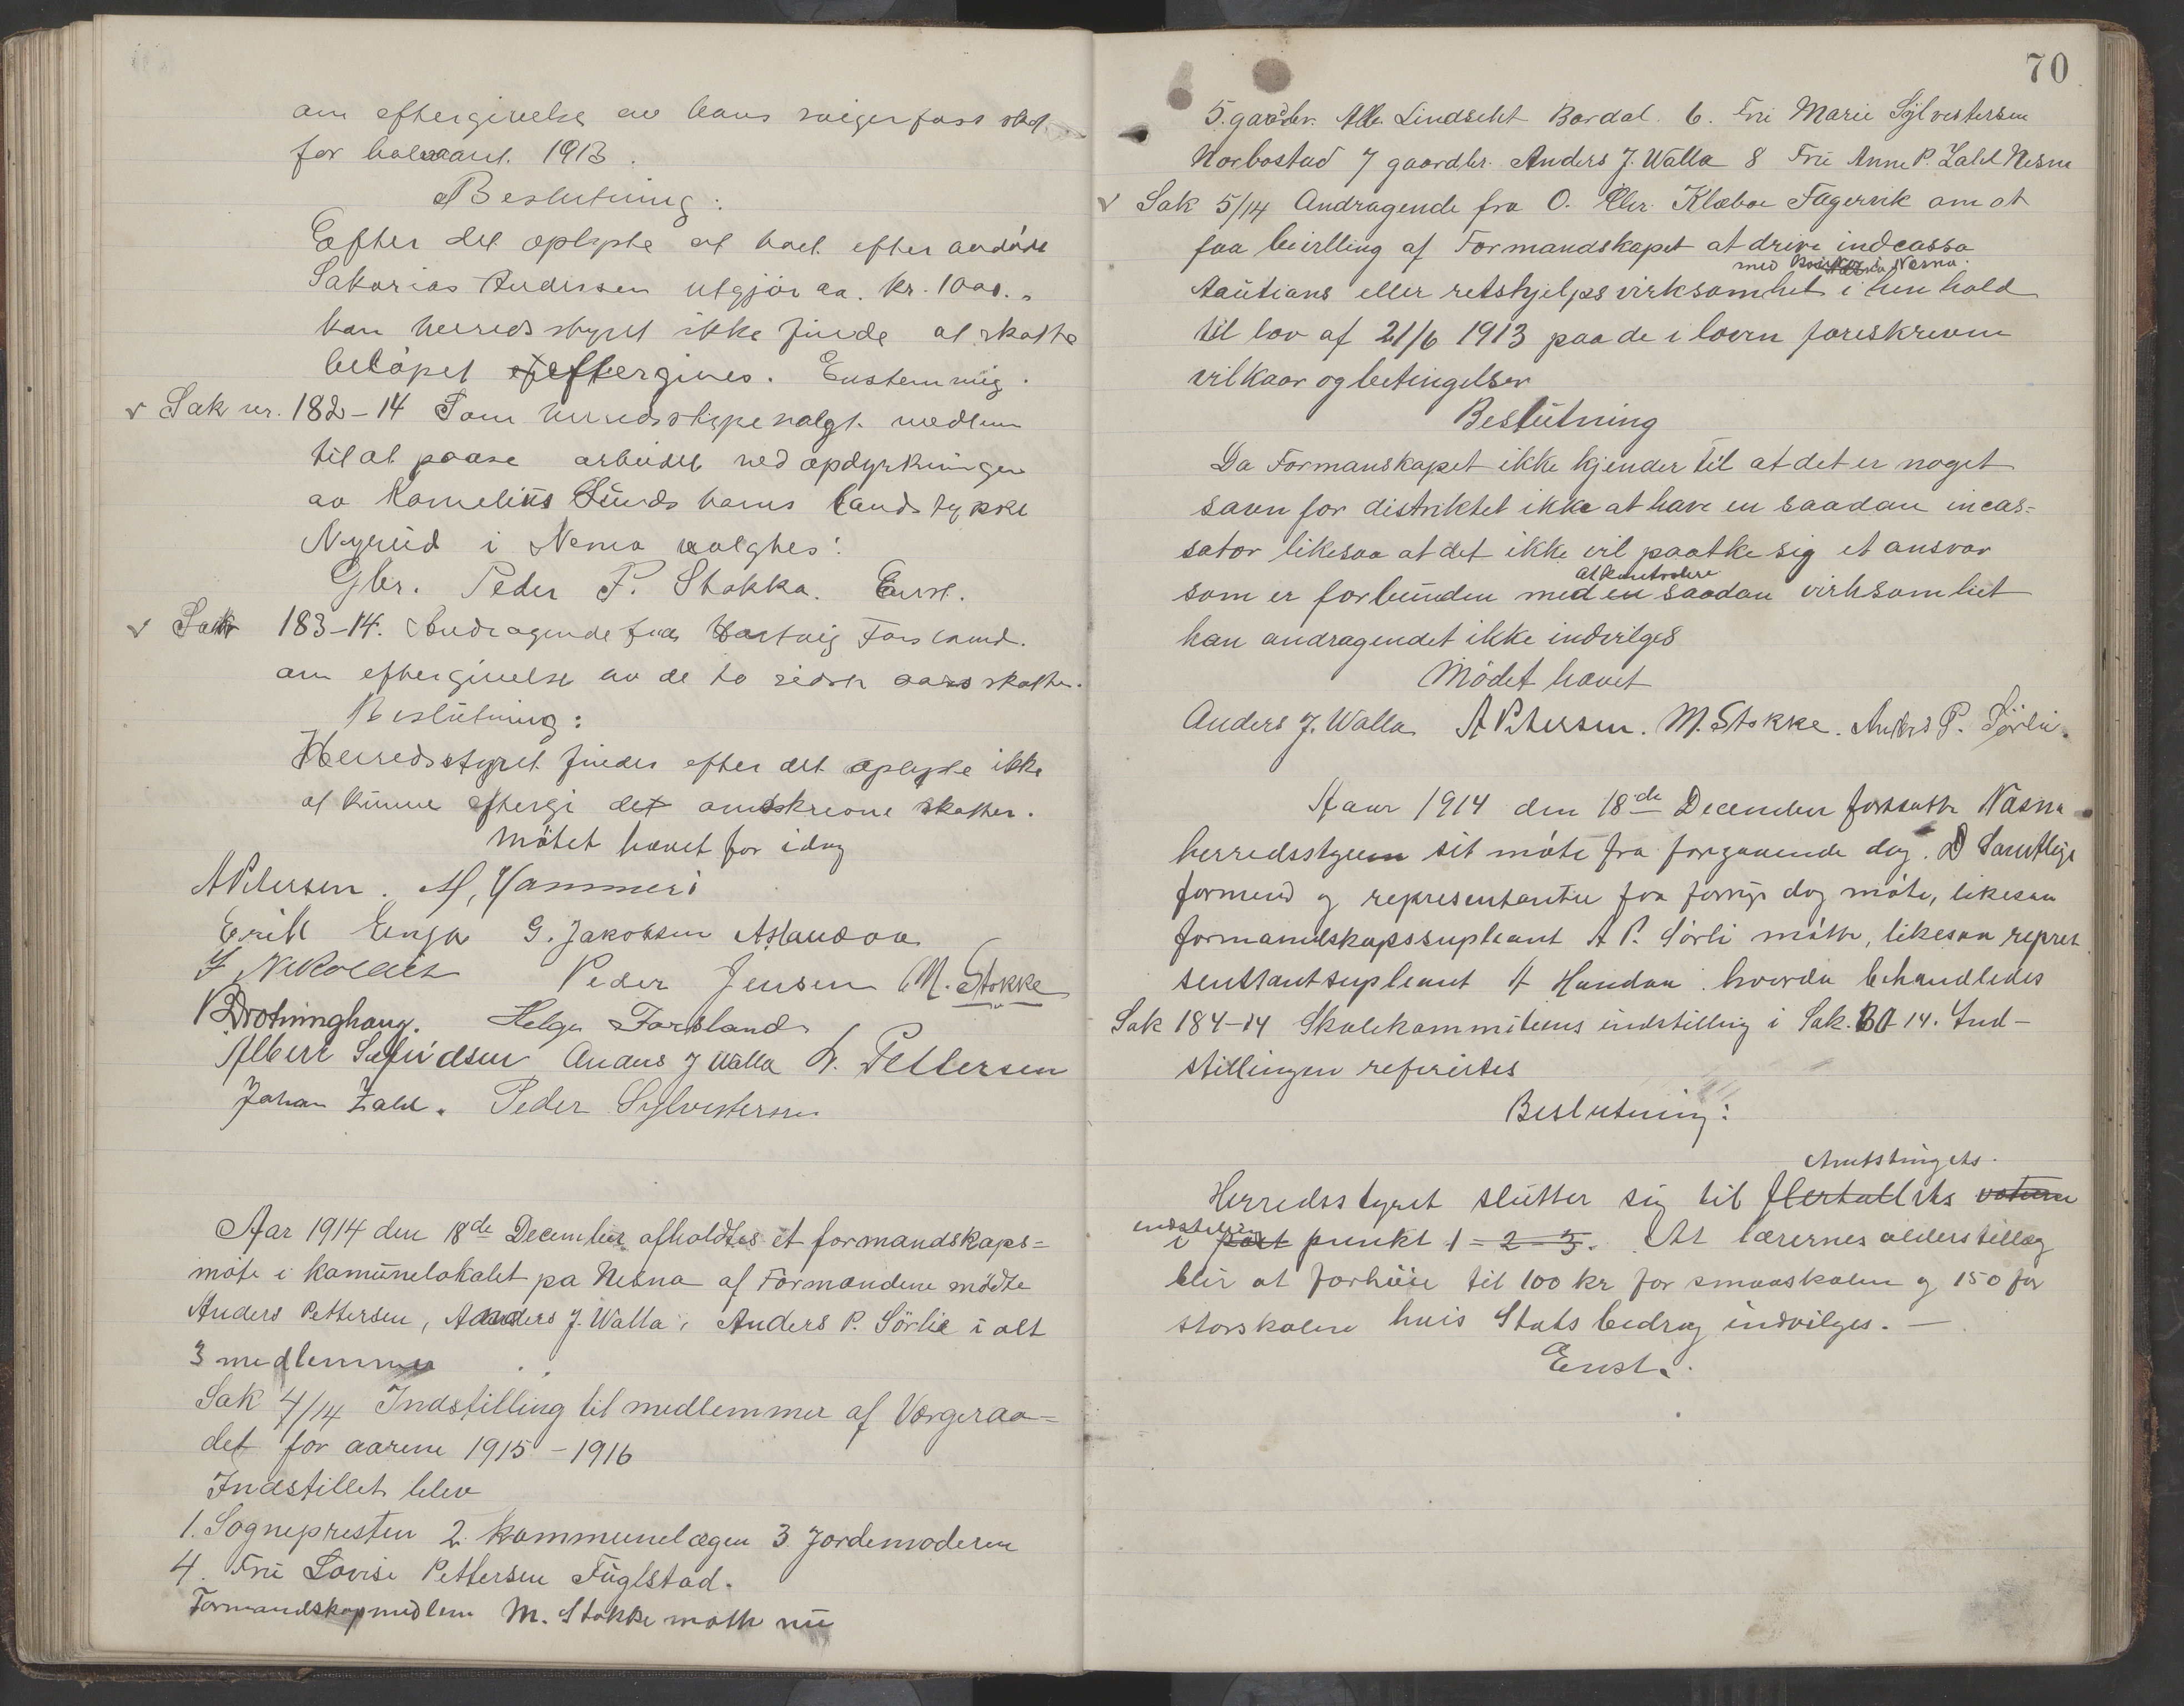 om eftergivelse av hans svigerfars skat
for halvaaret 1913.
Beslutning:
Efter det oplyste at boet efter avdöde
Sakarias Andersen utgjör ca. kr. 1000.,
kan herredsstyret ikke finde at skatte
belöpet eftergives. Enstemmig.
v Sak nr. 182-14 Som herredsstyrevalgt medlem
til at paase arbeidet ved opdyrkningen
av Kornelius Sunds barns landstykke
Nyrud i Nesna valgtes:
Gbr. Peder P. Stokka. Enst.
v Sak 183-14. Andragende fra Hartvig Forsland.
om eftergivelse av de to sidste aars skatter.
Beslutning:
Herredsstyret finder efter det oplyste ikke
at kunne eftergi det omskrevne skatter.
Mötet hævet for idag
A Petersen. M, Hammerö
Erik Enga G. Jakobsen A Handaa
Peder Jensen M. Stokke
Drotninghaug. Helge Forsland
Albert Anders J Walla L. Pettersen
Johan Zahl. Peder Sylvestersen
Aar 1914 den 18de December afholdtes et formandskaps=
möte i kommunelokalet pa Nesna af Formændene mödte
Anders Pettersen, Anders J. Walla, Anders P. Sörlie i alt
3 medlemmer
Sak 4/14 Indstilling til medlemmer af Værgeraa=
det for aarene 1915-1916
Indstillet blev
1. Sognepresten 2. kommunelægen 3. Jordemoderen
4. Frü Lovise Pettersen Füglstad.
Formandskapmedlem M. Stokke mötte nü
70
5. gaardbr. Alb. Bardal. 6. Frü Marie Sylvestersen
Norbostad 7 gaardbr. Anders J. Walla 8 Frü Anne P. Zahl Nesna
v Sak 5/14 Andragende fra O. Chr. Klæboe Fagervik om at
faa bevilling af Formandskapet at drive indcassa
med i Nesna.
Auctions eller retshjelps virksomhet i henhold
til lov af 21/6 1913 paa de i loven foreskrevne
vilkaar og betingelser
Beslütning
Da Formanskapet ikke kjender til at det er noget
savn for distriktet ikke at have en saadan incas=
sator likesaa at det ikke vil paatke sig et ansvar
at kontrolere
som er forbünden med en saadan virksomhet
kan andragendet ikke indvilges
Mödet hævet
Anders J. Walla A Petersen. M. Stokke. Anders P. Sörlie.
Aar 1914 den 18de December fortsatte Næsna
herredsstyre sit möte fra forgaaende dag. Samtlige
formend og representanter fra forrige dag möte, likesaa
formandskapssupleant A P. Sörli mötte, likesaa repre
sentantsupleant A Handaa. hvorda behandledes
Sak 184-14 Skolekommiteens indstilling i Sak. 14. Ind-
stillingen refertes
Beslutning:
Amtstingets.
Herredsstyret slütter sig til flertallets votum
indstilling
i post punkt 1=2=3. At lærernes alderstillæg
blir at forhöie til 100 kr for smaaskolen og 150 for
storskolen hvis Statsbedrag indvilges. —
Enst.